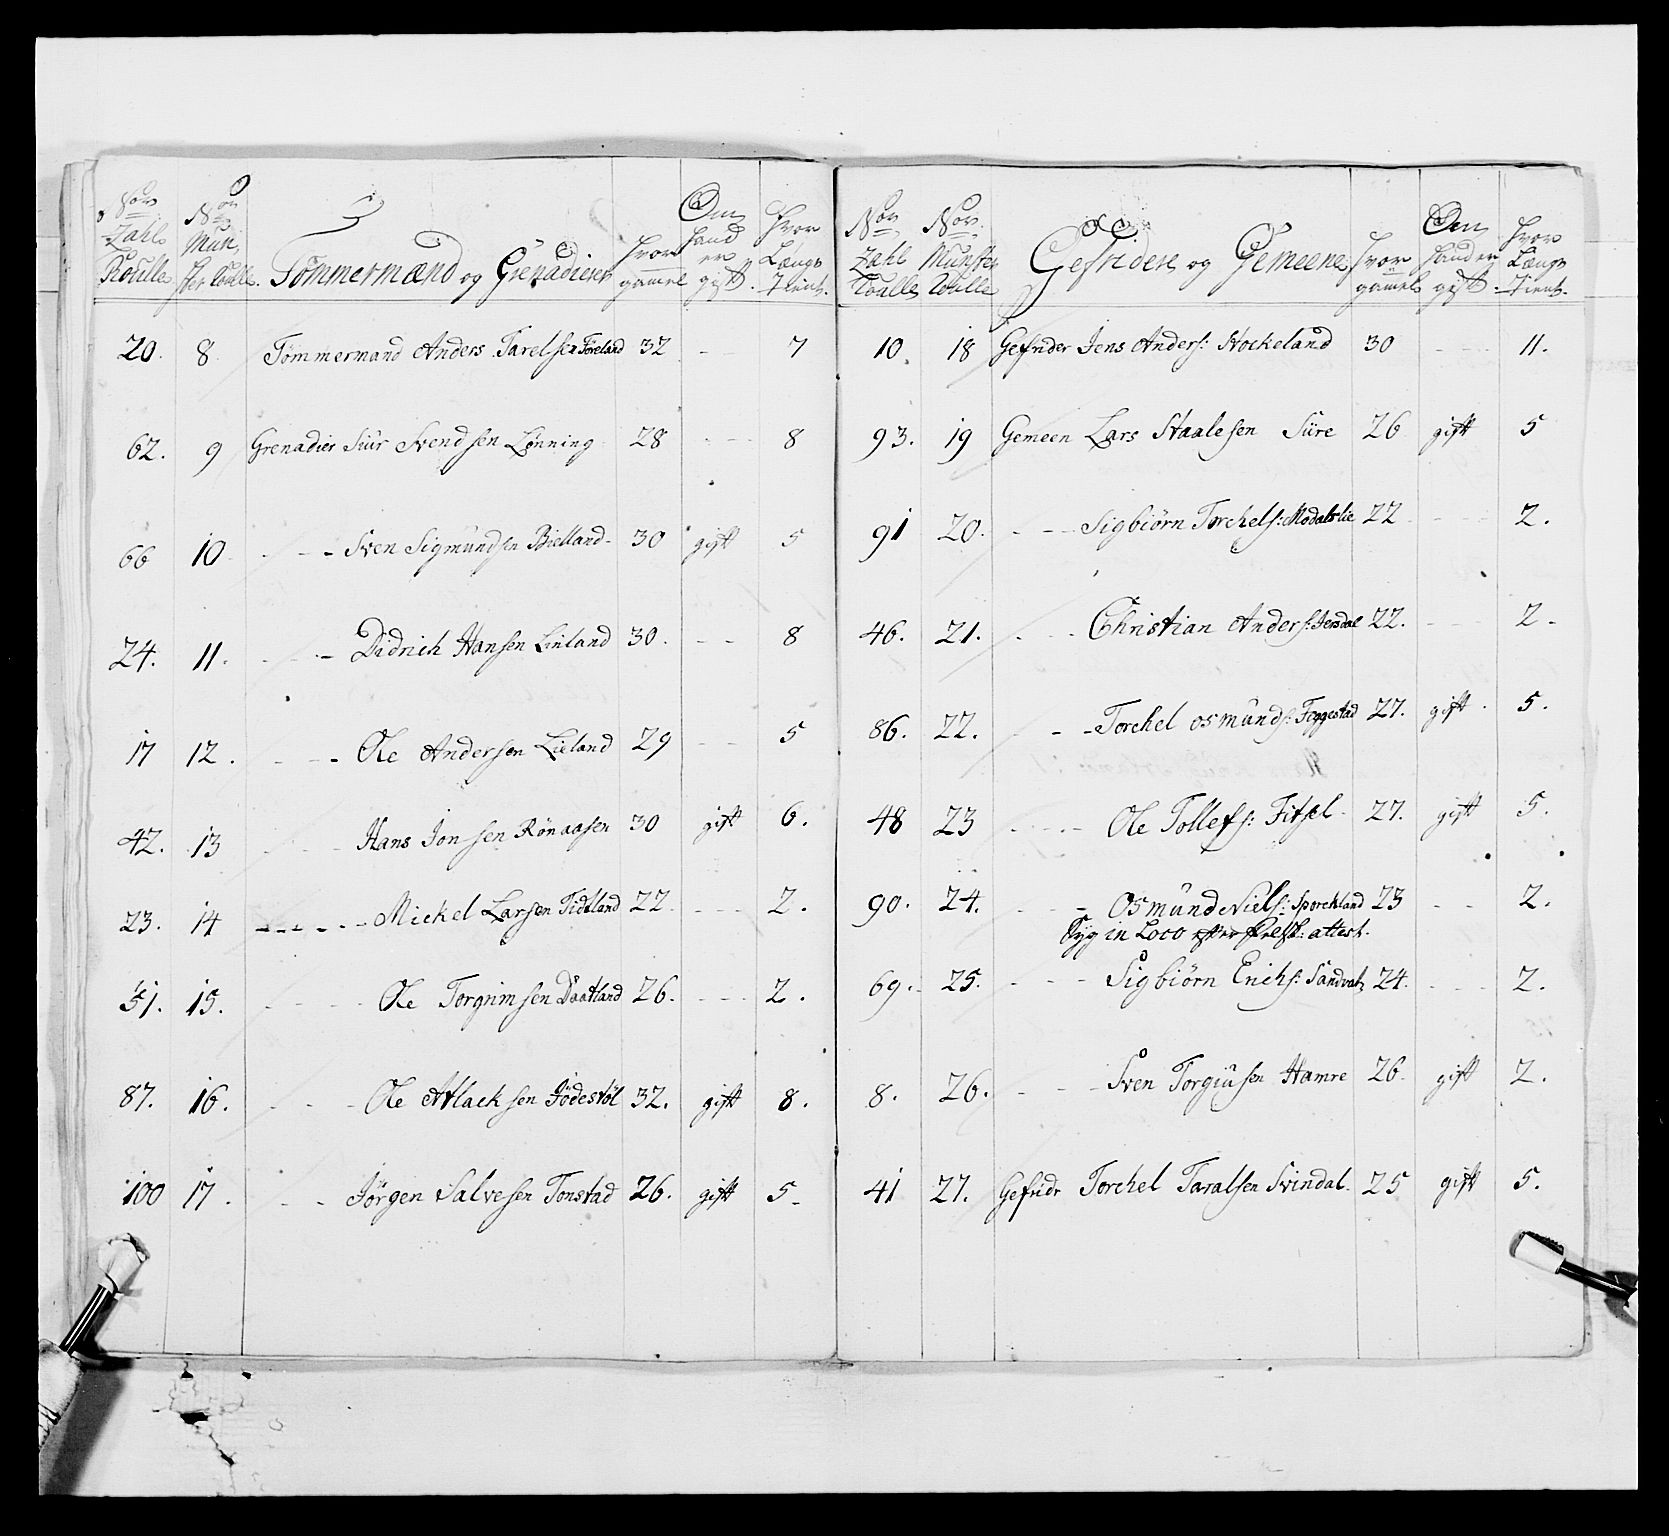 No Zahl Roulle No Mun ster Roulle. Tömmermænd og Grenadierer Hvor gammel Om hand er gift. Hvor Længe Tient.
20. 8 Tömmermand Anders Tarelsen Töreland 32 - 7
62. 9 Grenadier Siur Svendsen Lønning 28 - - 8
66 10 - - - Sven Sigmundsen Bielland 30 gift 5
24. 11. - - - Didrich Hansen Linland 30. - - 8
17 12. - - - Ole Andersen Lieland 29 - - 5
42. 13 - - - Hans Jonsen Rönaasen 30 gift 6.
23. 14 - - - - - Mickel Larsen Tidland 22 - - - 2.
51. 15. - - - - Ole Torgrimsen Daatland 26. - - - 2.
87. 16. - - - Ole Atlachsen Jödestöl 32. gift 8.
100 17. - - - Jörgen Salvesen Tonstad 26. gift 5.
No Zahl Roulle No Munster Roulle Gefridere og Gemeene Hvor gamel Om hand er gift. Hvor Længe Tient.
10. 18 Gefrider Jens Anders: Hockeland 30 - - - 11.
93. 19 Gemeen Lars Staalesen Süre 26 gift 5
91 20. - - - Sigbiörn Torchels: Modalslie 22 - - - 2.
46. 21. - - - Christian Anders: 22. - - - 2.
86. 22. - - - Torchel Osmunds: Feggestad 27. gift. 5.
48 23 - - - - Ole Tollefs: Fitsel 27. gift 5.
90. 24. - - - Osmund Niels: Sporckland 23 - - 2.
Syg in Loco efter Prest: attest.
69. 25. - - - Sigbiörn Erichs: Sandvat 24. - - - 2.
8. 26. - - - Sven Torgiusen Hamre 26 gift 2.
41 27. Gefridr Torchel Taralsen Svindal 25 gift 5.